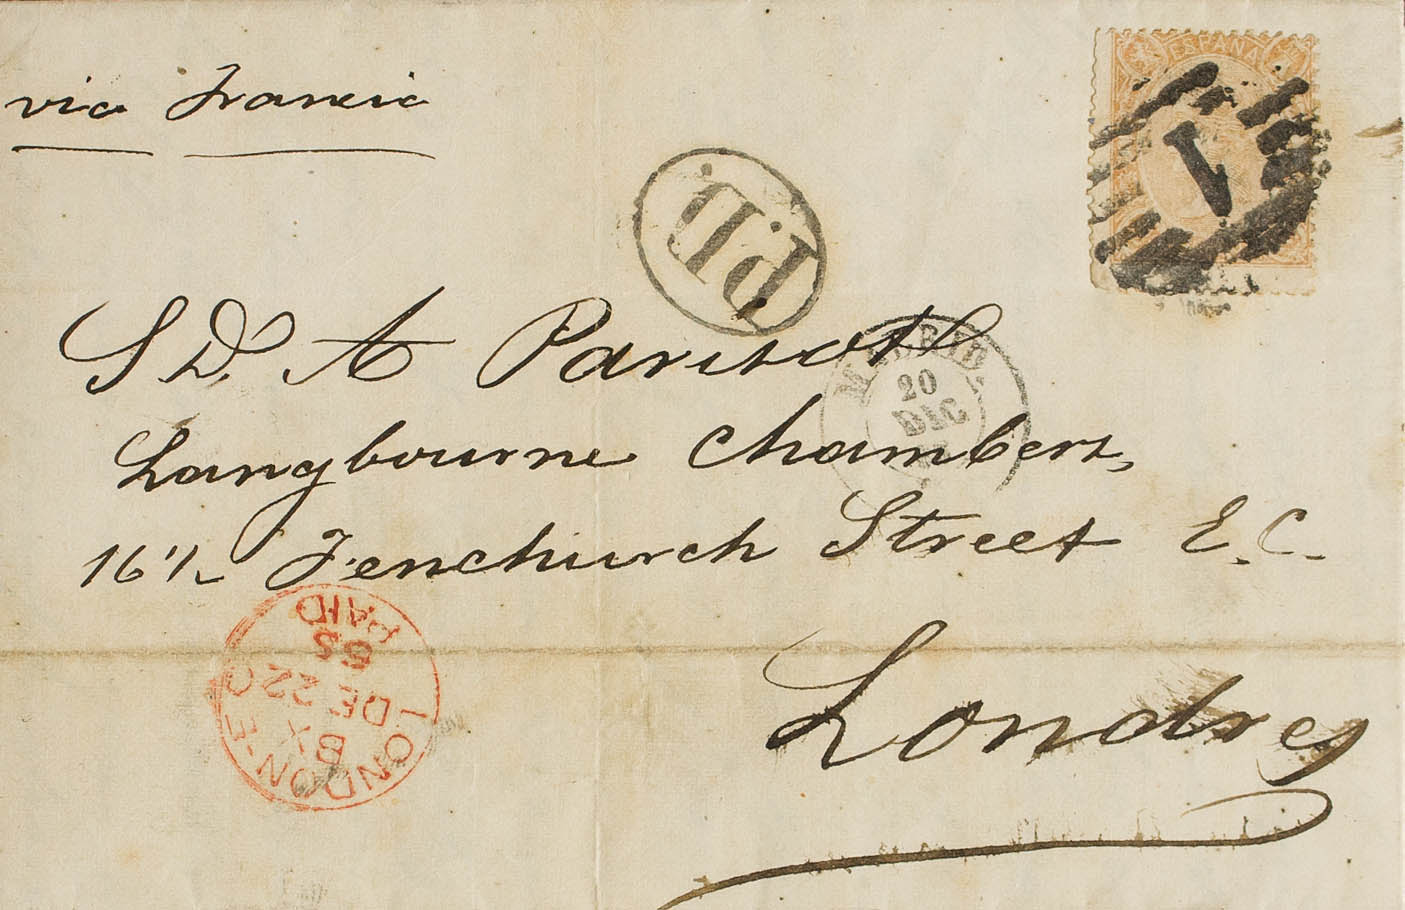 via Francia
ESPAÑA
1
P.D.
S D. A Parisot
MADRID
20
DIC
Langbourne Chambers,
16½ Fenchurch Street E.C.
Londres
LONDON-EC
BX
DE 22
65
PAID